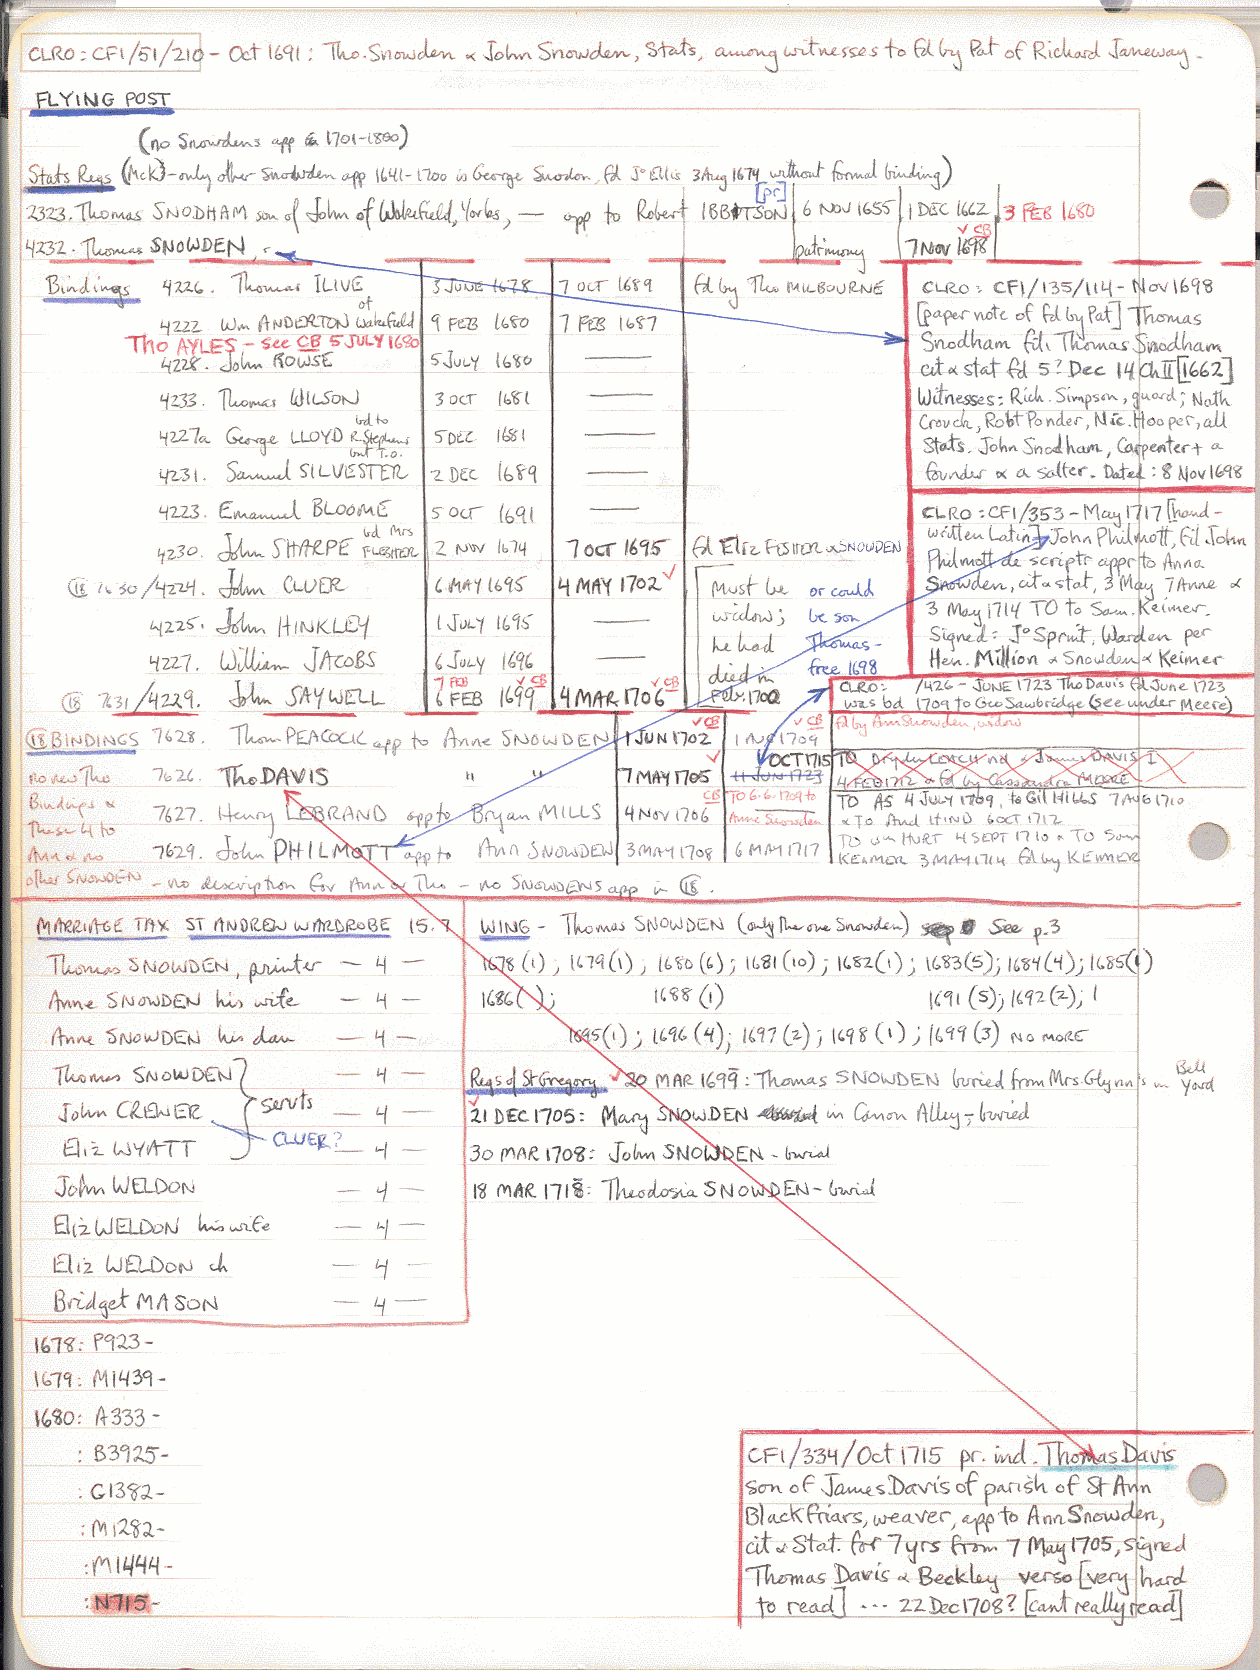 CLRO: CF1/51/210 - Oct 1691: Tho. Snowden & John Snowden, Stats, among witnesses to fd by Pat of Richard Janeway.
FLYING POST
(no Snowdens app 1701-1800)
Stats Regs (McK) - only other Snowden app 1641-1700 is George Snodon, fd Jo Ellis 3 Aug 1674 without formal binding)
2323. Thomas SNODHAM son of John of Wakefield, Yorks, — app to Robert IBBITSON [pr] 6 NOV 1655 1 DEC 1662 3 FEB 1680
4232. Thomas SNOWDEN, - patrimony 7 NOV 1698 ✓ CB
Bindings 4226. Thomas ILIVE 3 JUNE 1678 7 OCT 1689 fd by Tho MILBOURNE
4222 Wm ANDERTON of Wakefield 9 FEB 1680 7 FEB 1687
Tho AYLES - see CB 5 JULY 1680
4228. John ROWSE 5 JULY 1680 ——
4233. Thomas WILSON 3 OCT 1681 ——
4227a George LLOYD bd to R. Stephens but T.O. 5 DEC 1681 ——
4231. Samuel SILVESTER 2 DEC 1689 ——
4223. Emanuel BLOOME 5 OCT 1691 ——
4230. John SHARPE bd Mrs FLESHER 2 NOV 1674 7 OCT 1695 fd Eliz FLESHER & SNOWDEN
(18) 7630/4224. John CLUER 6 MAY 1695 4 MAY 1702 ✓
4225. John HINKLEY 1 JULY 1695 ——
4227. William JACOBS 6 July 1696 ——
(18) 7631/4229. John SAYWELL 7 FEB ✓ CB 6 FEB 1699 4 MAR 1706 ✓ CB
Must be widow; he had died in Feb. 1700
or could be son Thomas - free 1698
CLRO: CF1/135/114 - Nov 1698
[paper note of fd by Pat] Thomas
Snodham fd, Thomas Snodham
cit & stat fd 5? Dec 14 Ch II [1662]
Witnesses: Rich. Simpson, guard; Nath
Crouch, Robt Ponder, Nic. Hooper, all
Stats. John Snodham, Carpenter + a
founder & a salter. Dated: 8 Nov 1698
CLRO: CF1/353 - May 1717 [hand-
written Latin] John Philmott, fil John
Philmott de scripts appr to Anna
Snowden, cit & stat, 3 May 7 Anne &
3 May 1714 TO to Sam. Keimer.
Signed: Jo Sprint, Warden per
Hen. Million & Snowden & Keimer
CLRO: /426 - JUNE 1723 Tho Davis fd June 1723
was bd 1709 to Geo Sawbridge (see under Meere)
(18) BINDINGS 7628. Thom PEACOCK app to Anne SNOWDEN 1 JUN 1702 ✓ CB 1 AUG 1709 ✓ CB fd by Ann Snowden, widow
no new Tho 7626. Tho DAVIS " " 7 MAY 1705 ✓ OCT 1715 11 JUN 1723 TO Dryden LEACH and & James DAVIS
4 FEB 1712 & fd by Cassandra MOORE
Bindings & 7627. Henry LEBRAND app to Bryan MILLS 4 NOV 1706 CB TO 6.6.1709 to Anne Snowden TO AS 4 JULY 1709, to Gil HILLS 7 AUG 1710
& TO And HIND 6 OCT 1712
These 4 to
Ann & no 7629. John PHILMOTT app to Ann SNOWDEN 3 MAY 1708 6 MAY 1717 TO Wm HURT 4 SEPT 1710 & TO Sam
KEIMER 3 MAY 1714 fd by KEIMER
other SNOWDEN - no description for Ann or Tho - no SNOWDENS app in (18).
MARRIAGE TAX ST ANDREW WARDROBE 15.7
Thomas SNOWDEN, printer — 4 —
Anne SNOWDEN his wife — 4 —
Anne SNOWDEN his dau — 4 —
Thomas SNOWDEN — 4 —
John CREWER } servts — 4 —
CLUER?
Eliz WYATT — 4 —
John WELDON — 4 —
Eliz WELDON his wife — 4 —
Eliz WELDON ch — 4 —
Bridget MASON — 4 —
WING - Thomas SNOWDEN (only the one Snowden) See p. 3
1678 (1); 1679 (1); 1680 (6); 1681 (10); 1682 (1); 1683 (5); 1684 (4); 1685 (1)
1686 ( ); 1688 (1) 1691 (5); 1692 (2); 1
1695 (1); 1696 (4); 1697 (2); 1698 (1); 1699 (3) NO MORE
Regs of St Gregory ✓ 20 MAR 1699: Thomas SNOWDEN buried from Mrs. Glynn's in Bell Yard
✓ 21 DEC 1705: Mary SNOWDEN in Canon Alley, - buried
30 MAR 1708: John SNOWDEN - burial
18 MAR 1718: Theodosia SNOWDEN - burial
1678: P923-
1679: M1439-
1680: A333-
: B3925-
: G1382-
: M1282-
: M1444-
: N715-
CF1/334/Oct 1715 pr. ind. Thomas Davis
son of James Davis of parish of St Ann
Blackfriars, weaver, app to Ann Snowden,
cit & Stat. for 7 yrs from 7 May 1705, signed
Thomas Davis & Beckley verso [very hard
to read] ... 22 Dec 1708? [cant really read]